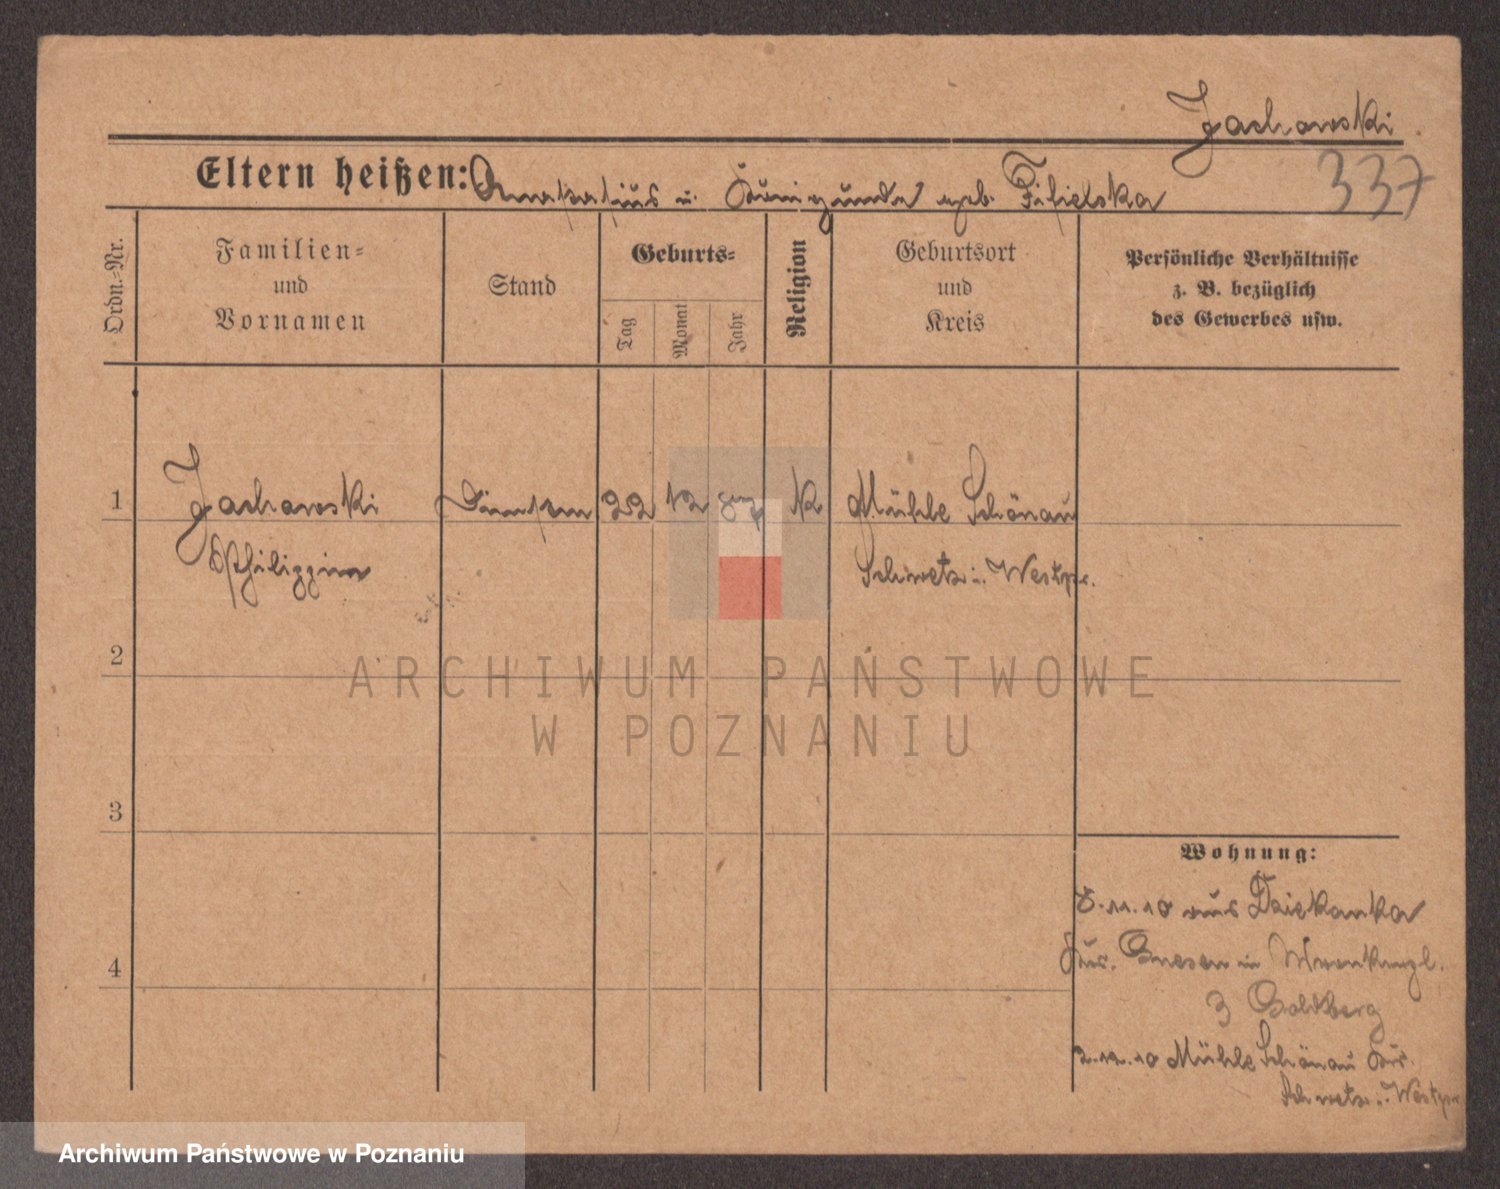 Jachowski
337
Eltern heißen: Anastasius u. Kunigunde geb. Filielska
Ordn.-Nr.
Familien-
und
Vornamen
Stand
Geburts-
Tag
Monat
Jahr
Religion
Geburtsort
und
Kreis
Persönliche Verhältnisse
z. B. bezüglich
des Gewerbes usw.
1
Jachowski
22 12 K
Mühle Schönau
Schwetz i. Westpr.
2
3
4
Wohnung:
8.11.10 aus Dziekanka
Kr. Gnesen in
3 Goldberg
2.12.10 Mühle Schönau Kr.
Schwetz i. Westpr.
ARCHIWUM PAŃSTWOWE
W POZNANIU
Archiwum Państwowe w Poznaniu